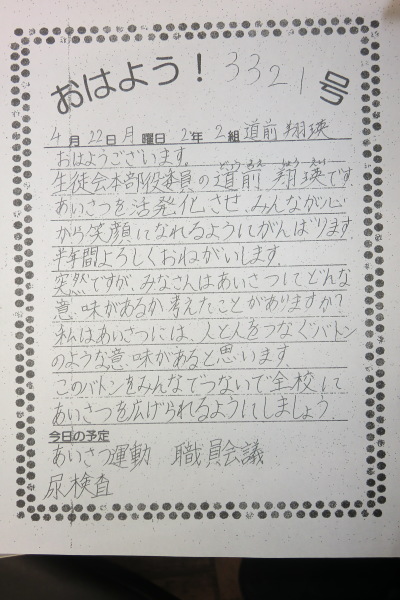 おはよう！ 3321号
4月22日月曜日 2年2組 道前 翔瑛
おはようございます。
どうまえ しょうえい
生徒会本部役委員の道前 翔瑛です。
あいさつを活発化させ、みんなが心
から笑顔になれるようにがんばります
半年間よろしくおねがいします。
突然ですが、みなさんはあいさつってどんな
意味があるか考えたことがありますか？
私はあいさつには、人と人をつなぐバトン
のような意味があると思います
このバトンをみんなでつないで全校に
あいさつを広げられるようにしましょう。
今日の予定
あいさつ運動 職員会議
尿検査